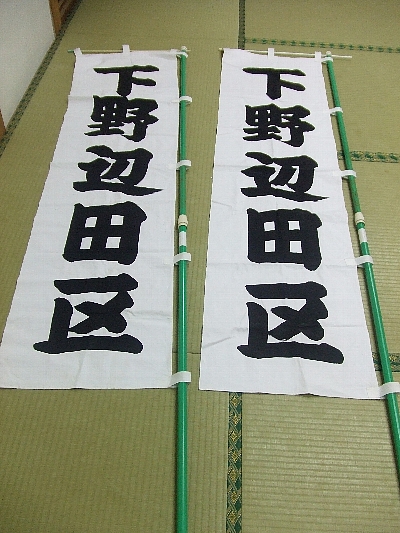 下野辺田区
下野辺田区